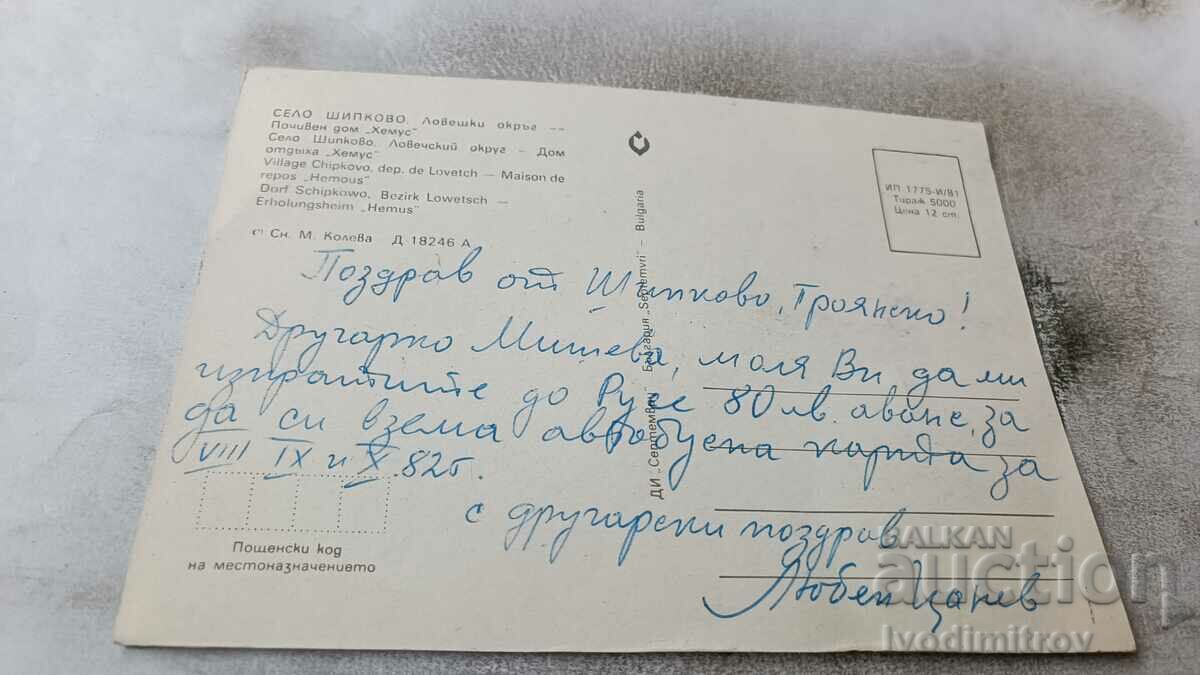 СЕЛО ШИПКОВО, Ловешки окръг --
Почивен дом „Хемус“
Село Шипково, Ловечский округ – Дом
отдыха „Хемус“
Village Chipkovo, dep. de Lovetch — Maison de
repos „Hemous“
Dorf Schipkowo, Bezirk Lowetsch —
Erholungsheim „Hemus“
Сн. М. Колева Д 18246 А
ДИ „Септември“ България „Septemvri“ – Bulgaria
ИП 1775-И/81
Тираж 5000
Цена 12 ст.
Поздрав от Шипково, Троянско!
Другарко Митева, моля Ви да ми
изпратите до Русе 80 лв. аванс, за
да си взема автобусна карта за
VIII IX и X 82г.
с другарски поздрав
Любен Цанев
Пощенски код
на местоназначението
BALKAN
auction
Ivodimitrov